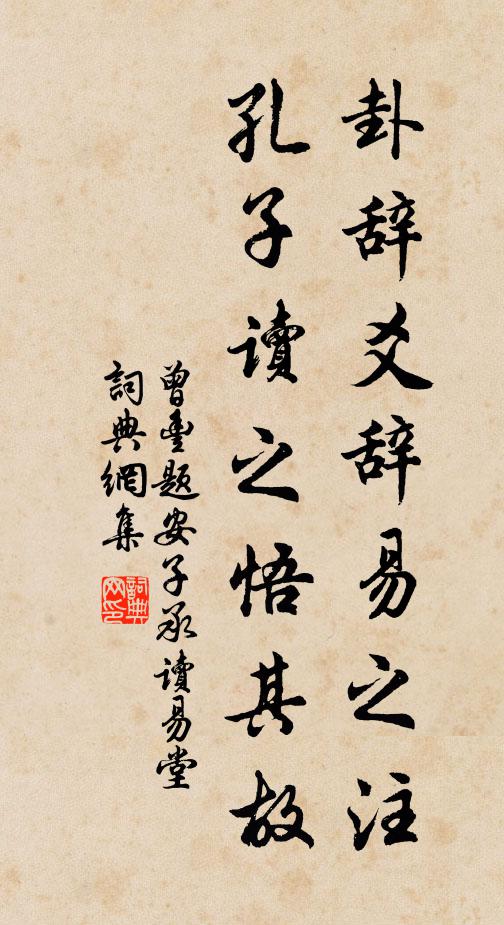 卦辞爻辞易之注
孔子读之悟其故
曾丰题安子承读易堂
詞典網集
詞典网印